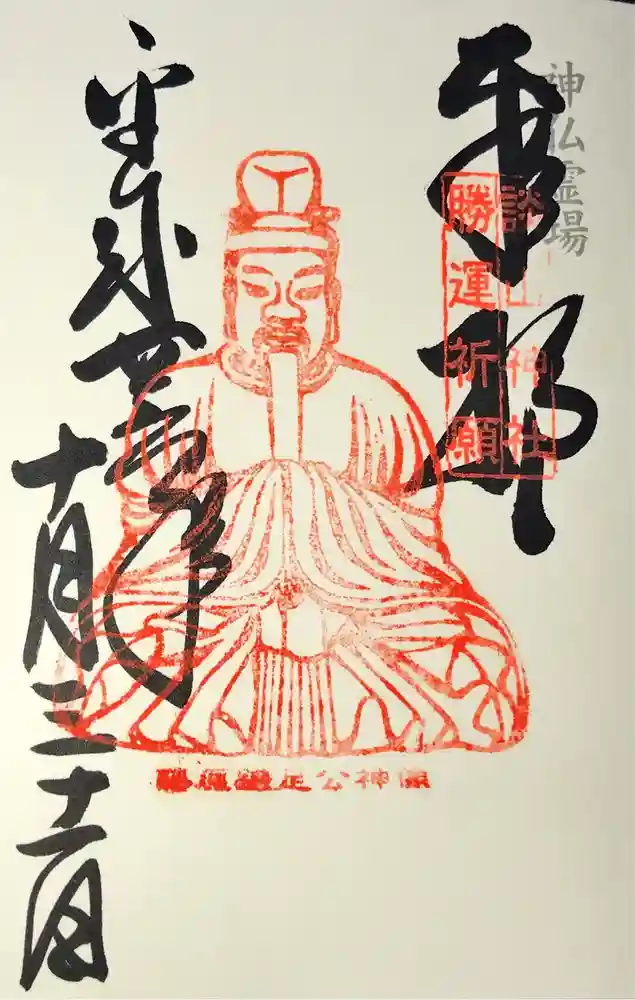 神仏霊場
奉拝
談山神社
勝運祈願
藤原鎌足公神像
平成廿年
十月三十一日